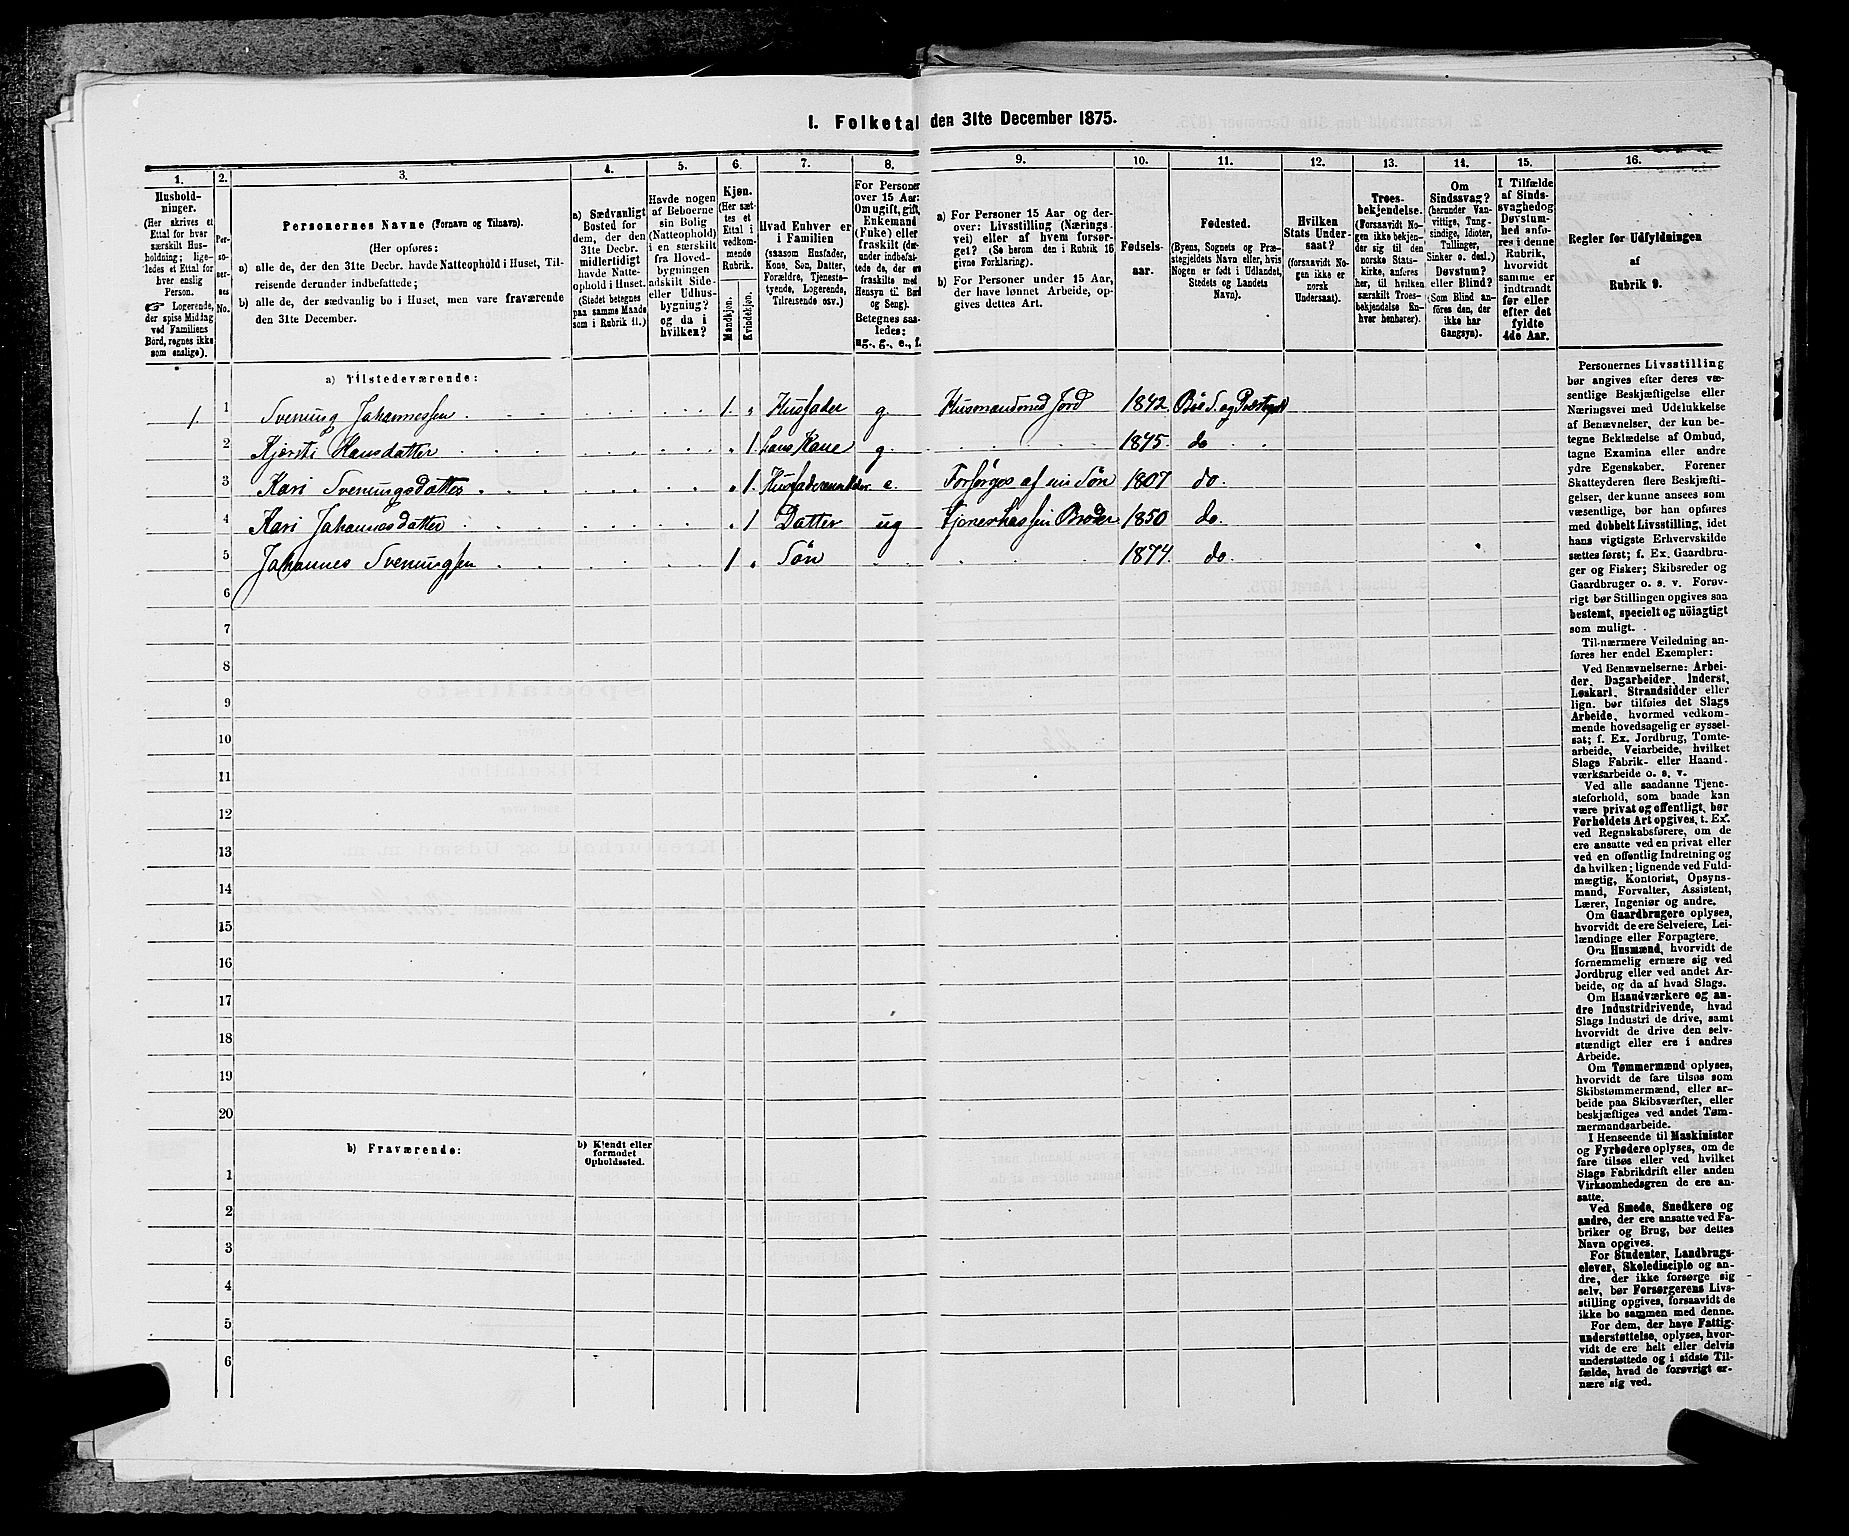 1. Folketal den 31te December 1875.
1. 2. 3. 4. 5. 6. 7. 8. 9. 10. 11. 12. 13. 14. 15. 16.
Hushold-
ninger.
(Her skrives et
Ettal for hver
særskilt Hus-
holdning; lige-
ledes et Ettal for
hver enslig
Person.
☞ Logerende,
der spise Middag
ved Familiens
Bord, regnes ikke
som enslige).
Per-
so-
ner-
nes
No.
Personernes Navne (Fornavn og Tilnavn).
(Her opføres:
a) alle de, der den 31te Decbr. havde Natteophold i Huset, Til-
reisende derunder indbefattede;
b) alle de, der sædvanlig bo i Huset, men vare fraværende
den 31te December.
a) Sædvanligt
Bosted for
dem, der den
31te Decbr.
midlertidigt
havde Natte-
ophold i Huset.
(Stedet betegnes
paa samme Maade
som i Rubrik 11.)
Havde nogen
af Beboerne
sin Bolig
(Natteophold)
i en særskilt
fra Hoved-
bygningen
adskilt Side-
eller Udhus-
bygning?
og da i
hvilken?
Kjøn.
(Her sæt-
tes et
Ettal i
vedkom-
mende
Rubrik.
Mandkjøn.
Kvindekjøn.
Hvad Enhver er
i Familien
(saasom Husfader,
Kone, Søn, Datter,
Forældre, Tjeneste-
tyende, Logerende,
Tilreisende osv.)
For Personer
over 15 Aar:
Om ugift, gift,
Enkemand
(Enke) eller
fraskilt (der-
under indbefat-
tede de, der ere
fraskilte med
Hensyn til Bord
og Seng).
Betegnes saa-
ledes:
ug., g., e., f.
a) For Personer 15 Aar og der-
over: Livsstilling (Nærings-
vei) eller af hvem forsør-
get? (Se herom den i Rubrik 16
givne Forklaring).
b) For Personer under 15 Aar,
der have lønnet Arbeide, op-
gives dettes Art.
Fødsels-
aar.
Fødested.
(Byens, Sognets og Præ-
stegjeldets Navn eller, hvis
Nogen er født i Udlandet,
Stedets og Landets
Navn).
Hvilken
Stats Under-
saat?
(forsaavidt No-
gen ikke er
norsk
Undersaat).
Troes-
bekjendelse.
(Forsaavidt No-
gen ikke bekjen-
der sig til den
norske Stats-
kirke, anføres
her, til hvilken
særskilt Troes-
bekjendelse En-
hver henhører).
Om
Sindssvag?
(herunder Van-
vittige, Tung-
sindige, Idioter,
Tullinger,
Sinker o. desl.)
Døvstum?
eller Blind?
(Som Blind an-
føres den, der
ikke har
Gangsyn).
I Tilfælde
af Sinds-
svaghed og
Døvstum-
hed anfø-
res i denne
Rubrik,
hvorvidt
samme er
indtraadt
før eller
efter det
fyldte
4de Aar.
Regler for Udfyldningen
af
Rubrik 9.
a) Tilstedeværende:
1. 1 Svenung Johannessen 1. „ Husfader g. Husmand med Jord 1842 Bøe S. og Præstegjd
2 Kjersti Hansdatter „ 1. hans Kone g. 1845 do
3 Kari Svenungsdatter „ 1. Husfaderens Moder e. Forsørges af sin Søn 1807 do.
4 Kari Johannesdatter „ 1 Datter ug tjener hos sin Broder 1850 do.
5 Johannes Svenungsen 1 „ Søn 1874. do.
6
7
8
9
10
11
12
13
14
15
16
17
18
19
20
b) Fraværende:
b) Kjendt eller
formodet
Opholdssted.
1
2
3
4
5
6
Personernes Livsstilling
bør angives efter deres væ-
sentlige Beskjæftigelse eller
Næringsvei med Udelukkelse
af Benævnelser, der kun be-
tegne Beklædelse af Ombud,
tagne Examina eller andre
ydre Egenskaber. Forener
Skatteyderen flere Beskjæfti-
gelser, der kunne ansees som
væsentlige, bør han opføres
med dobbelt Livsstilling, idet
hans vigtigste Erhvervskilde
sættes først; f. Ex. Gaardbru-
ger og Fisker; Skibsreder og
Gaardbruger o. s. v. Forøv-
rigt bør Stillingen opgives saa
bestemt, specielt og nöiagtigt
som muligt.
Til nærmere Veiledning an-
føres her endel Exempler:
Ved Benævnelserne: Arbei-
der, Dagarbeider, Inderst,
Løskarl, Strandsidder eller
lign. bør tilføies det Slags
Arbeide, hvormed vedkom-
mende hovedsagelig er syssel-
sat; f. Ex. Jordbrug, Tomte-
arbeide, Veiarbeide, hvilket
Slags Fabrik- eller Haand-
værksarbeide o. s. v.
Ved alle saadanne Tjene-
steforhold, som baade kan
være privat og offentligt, bør
Forholdets Art opgives, t. Ex.
ved Regnskabsførere, om de
ere ansatte ved en privat eller
ved en offentlig Indretning og
da hvilken; lignende ved Fuld-
mægtig, Kontorist, Opsyns-
mand, Forvalter, Assistent,
Lærer, Ingeniør og andre.
Om Gaardbrugere oplyses,
hvorvidt de ere Selveiere, Lei-
lændinge eller Forpagtere.
Om Husmænd, hvorvidt de
fornemmelig ernære sig ved
Jordbrug eller ved andet Ar-
beide, og da af hvad Slags.
Om Haandværkere og an-
dre Industridrivende, hvad
Slags Industri de drive, samt
hvorvidt de drive den selv-
stændigt eller ere i andres
Arbeide.
Om Tømmermænd oplyses,
hvorvidt de fare tilsøs som
Skibstømmermænd, eller ar-
beide paa Skibsværfter, eller
beskjæftiges ved andet Tøm-
mermandsarbeide.
I Henseende til Maskinister
og Fyrbødere oplyses, om de
fare tilsøs eller ved hvilket
Slags Fabrikdrift eller anden
Virksomhedsgren de ere an-
satte.
Ved Smede, Snedkere og
andre, der ere ansatte ved Fa-
briker og Brug, bør dettes
Navn opgives.
For Studenter, Landbrugs-
elever, Skoledisciple og an-
dre, der ikke forsørge sig
selv, bør Forsørgerens Livs-
stilling opgives, forsaavidt de
ikke bo sammen med denne.
For dem, der have Fattig-
understøttelse, oplyses, hvor-
vidt de ere helt eller delvis
understøttede og i sidste Til-
fælde, hvad de forøvrigt er-
nære sig ved.